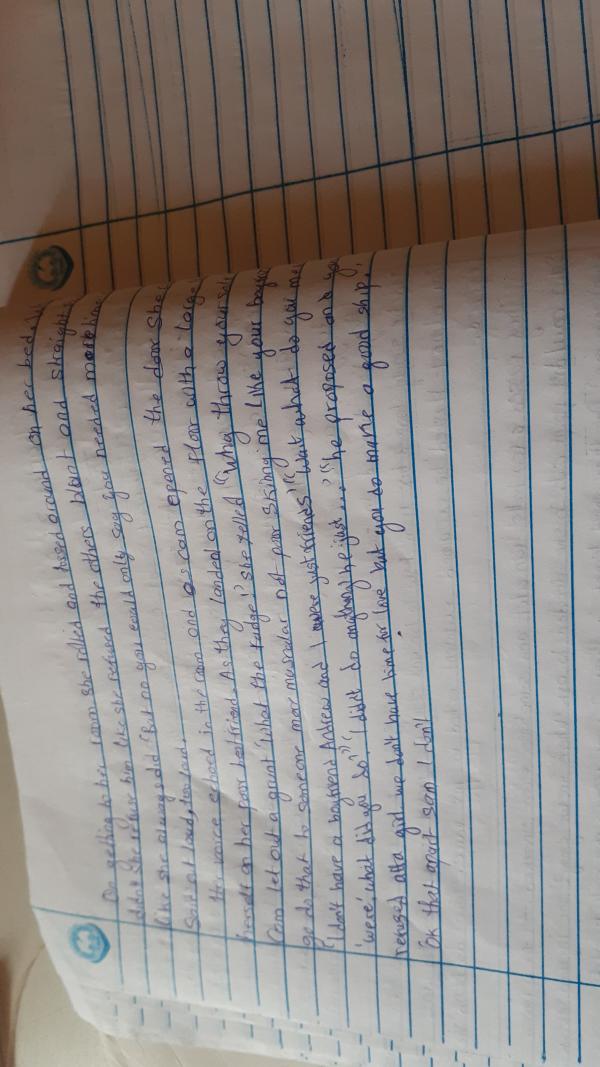 On getting to her room she rolled and tossed around on her bed. Why
didn't she refuse him like she refused the others blunt and straight
like she always did "But no you could only say you needed more time
Said out loud, too loud.
Her voice echoed in the room and as cam opened the door She
herself on her poor bestfriend. As they landed on the floor with a large
Cam let out a grunt "What the fudge!" she yelled "Why throw your self
go do that to someone more muscular not poor skinny me like your boyfri
"I don't have a boyfriend Andrew and I were just friends" "Wait what do you mean
'were' what did you do" "I didn't do anything he just..." "he proposed and you
refused atta girl we don't have time for love but you do make a good ship.
"Ok that apart sam I don't